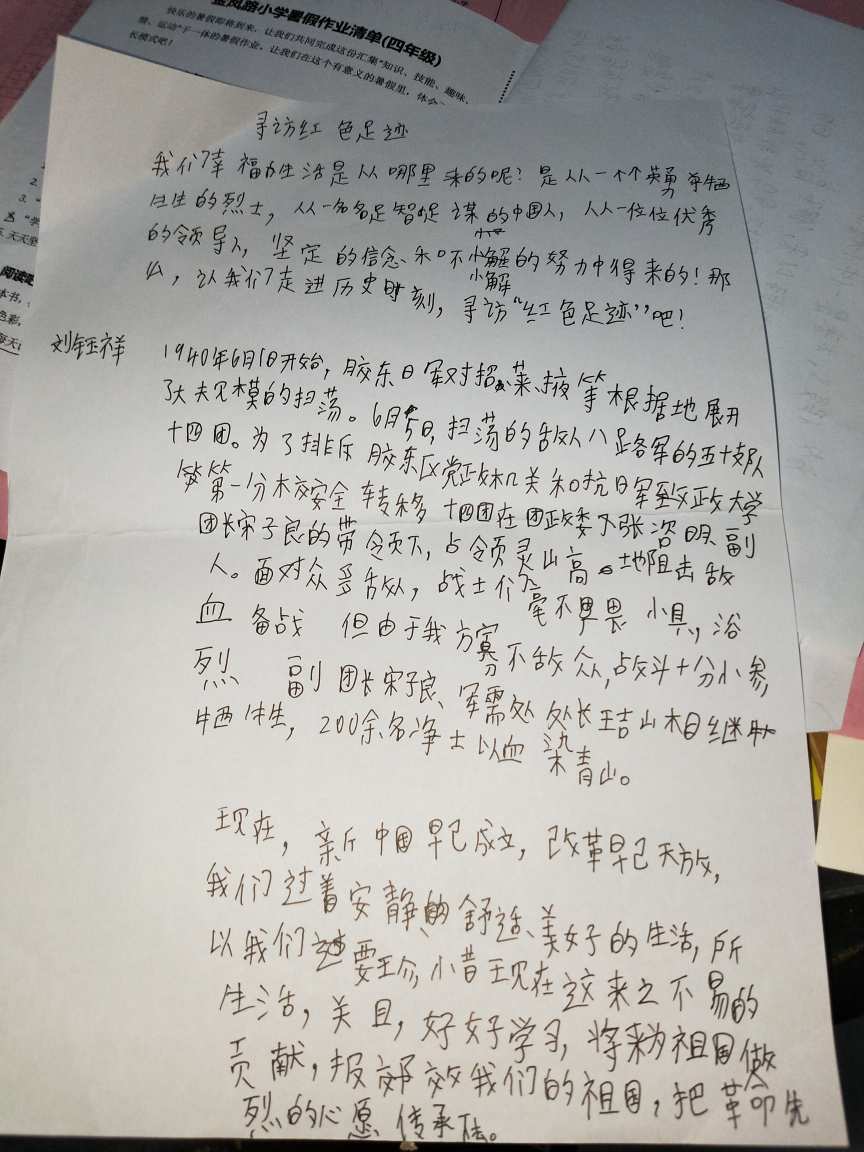 金凤路小学暑假作业清单(四年级)
快乐的暑假即将到来，让我们共同完成这份汇集“知识、技能、趣味、
运动”于一体的暑假作业。让我们在这个有意义的暑假里，体会
长模式吧！
寻访红色足迹
我们幸福的生活是从哪里来的呢？是从一个个英勇牺
牲的烈士，从一名名足智足谋的中国人，从一位位优秀
的领导人，坚定的信念和不懈的努力中得来的！那
么，让我们走进历史时刻，寻访“红色足迹”吧！
刘钰祥
1940年6月1日开始，胶东日军对招、莱、掖等根据地展开
了大规模的扫荡。6月5日，扫荡的敌人八路军的五十支队
十四团。为了排斥胶东区党政机关和抗日军政大学
第一分校安全转移 十四团在团政委张咨明副
团长宋子良的带领下，占领灵山高地阻击敌
人。面对众多敌人，战士们毫不畏惧，浴
血备战 但由于我方寡不敌众，战斗十分惨
烈 副团长宋子良、军需处处长王吉山相继
牺牲，200余名净士以血染青山。
现在，新中国早已成立，改革早已天放，
我们过着安静的、舒适、美好的生活，所
以我们要珍惜现在这来之不易的
生活，关且，好好学习，将来为祖国做
贡献，报效我们的祖国，把革命先
烈的心愿传承下去。